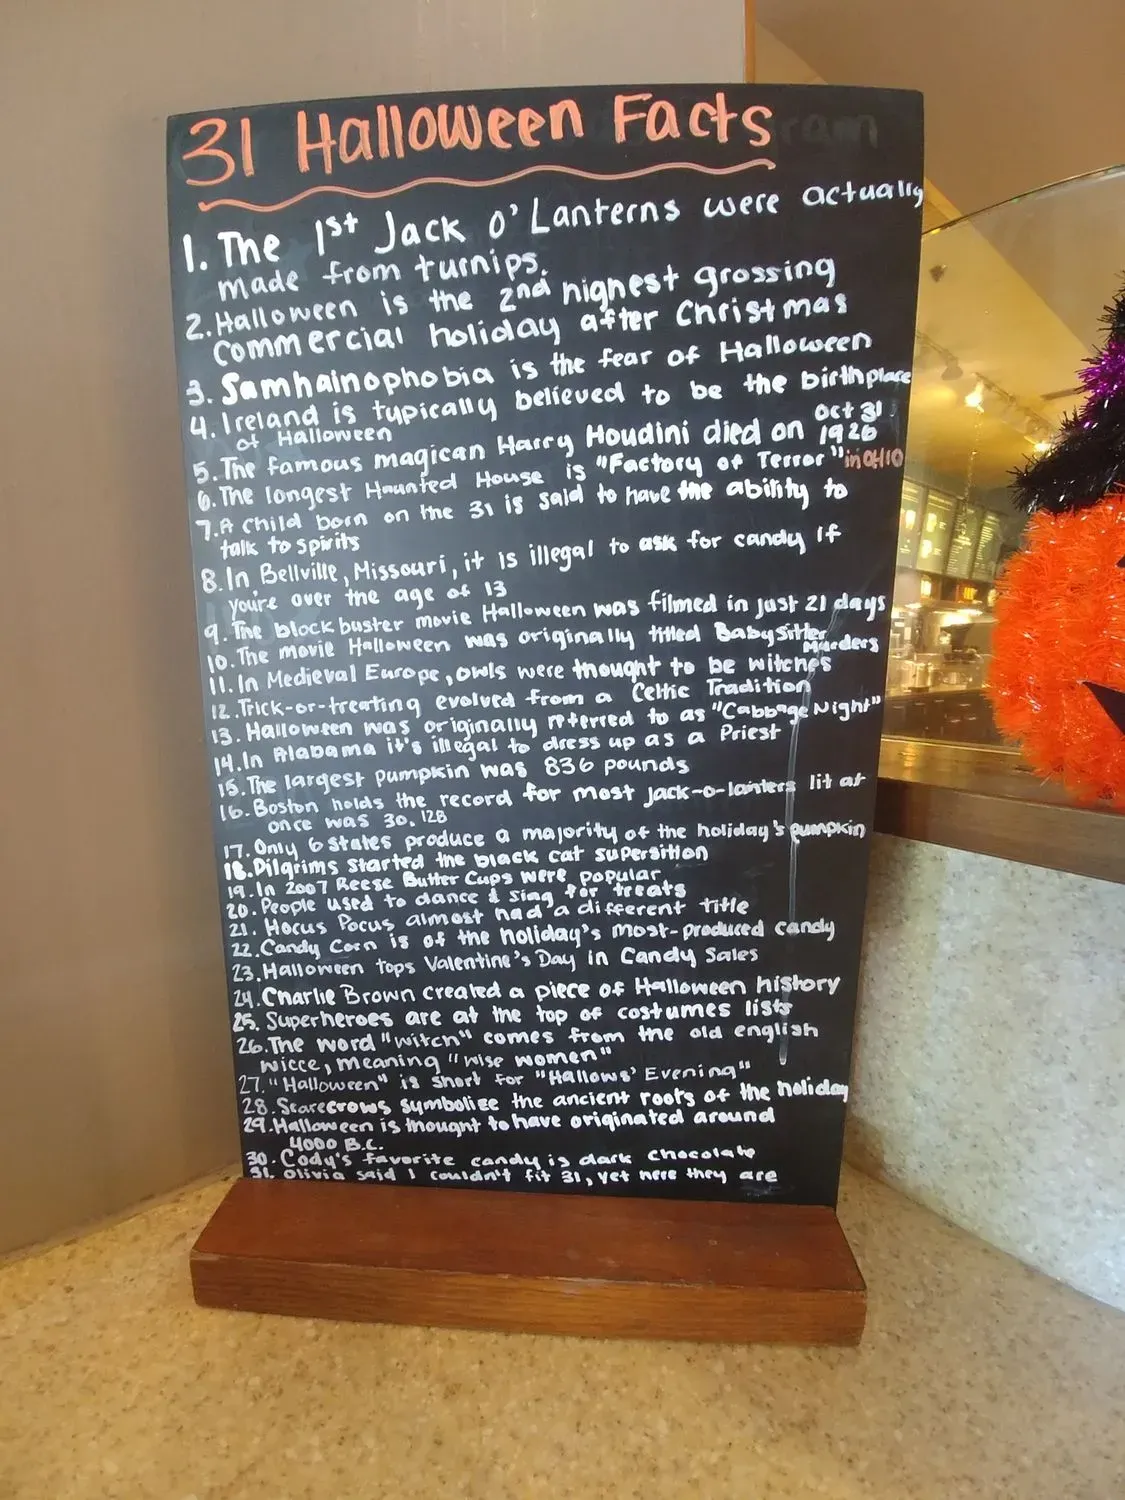 31 Halloween Facts
1. The 1st Jack o' Lanterns were actually
made from turnips.
2. Halloween is the 2nd highest grossing
commercial holiday after Christmas
3. Samhainophobia is the fear of Halloween
4. Ireland is typically believed to be the birthplace
of Halloween
5. The famous magican Harry Houdini died on Oct 31
1926
6. The longest Haunted House is "Factory of Terror" in OHIO
7. A child born on the 31 is said to have the ability to
talk to spirits
8. In Bellville, Missouri, it is illegal to ask for candy if
you're over the age of 13
9. The blockbuster movie Halloween was filmed in just 21 days
10. The movie Halloween was originally titled Babysitter
Murders
11. In Medieval Europe, owls were thought to be witches
12. Trick-or-treating evolved from a Celtic Tradition
13. Halloween was originally referred to as "Cabbage Night"
14. In Alabama it's illegal to dress up as a Priest
15. The largest pumpkin was 836 pounds
16. Boston holds the record for most jack-o-lanters lit at
once was 30.128
17. Only 6 states produce a majority of the holiday's pumpkin
18. Pilgrims started the black cat supersition
19. In 2007 Reese Butter Cups were popular
20. People used to dance & sing for treats
21. Hocus Pocus almost had a different title
22. Candy Corn is of the holiday's most-produced candy
23. Halloween tops Valentine's Day in Candy Sales
24. Charlie Brown created a piece of Halloween history
25. Superheroes are at the top of costumes lists
26. The word "witch" comes from the old english
wicce, meaning "wise women"
27. "Halloween" is short for "Hallows' Evening"
28. Scarecrows symbolize the ancient roots of the holiday
29. Halloween is thought to have originated around
4000 B.C.
30. Cody's favorite candy is dark chocolate
31. Olivia said I couldn't fit 31, yet here they are